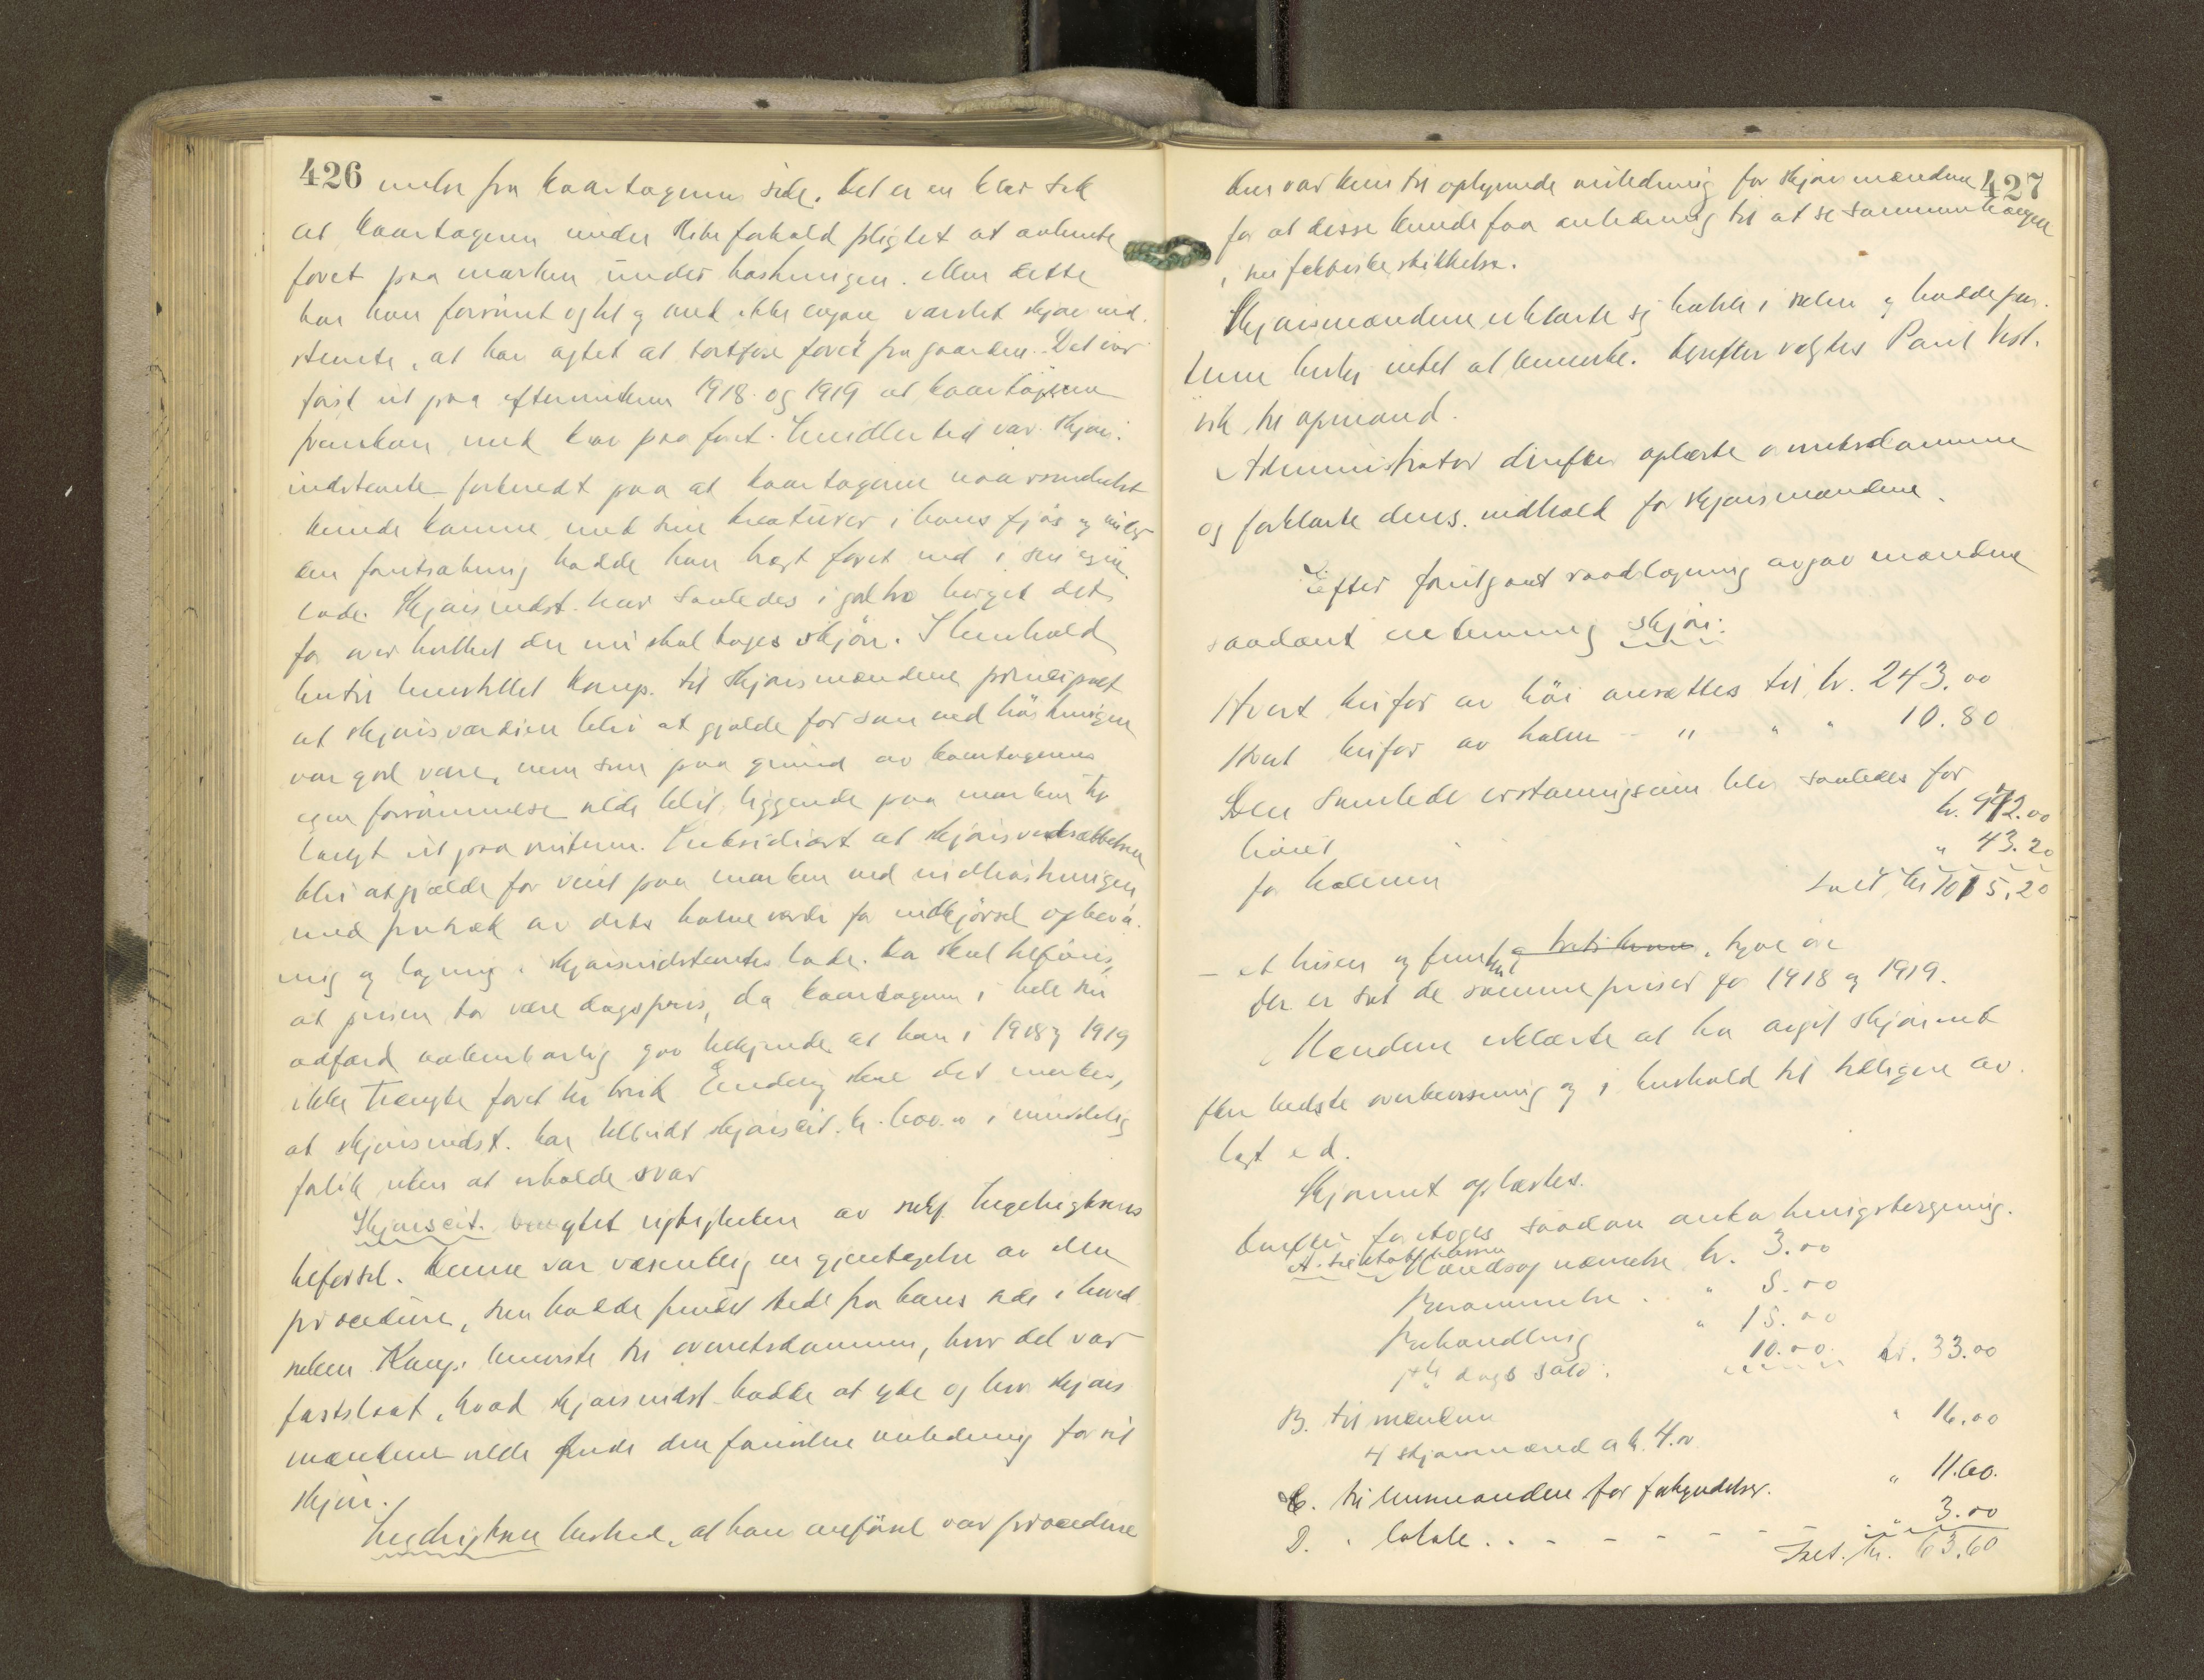 426
fra kaartageren side. Det er en klar sak
at kaartageren under slike forhold pligtet at avhente
foret paa marken under høstningen. Men dette
har han forsømt og med ikke engang varslet skjønsind.
stevnte, at han agtet at bortføre foret fra gaarden. Det var
først ut paa eftervinteren 1918 og 1919 at kaartageren
fremkom med krav paa foret. Imidlertid var skjøns.
indstevnte forberedt paa at kaartageren naarsomhelst
kunde komme med sine kreaturer i hans fjøs og under
den forutsætning hadde han bragt foret ind i sin egen
lade. Skjønsindst. har saaledes i god tro berget det
for over hvilket der nu skal tages skjøn. I henhold
hertil henstillet Kamp. til skjønsmændene principalt
at skjønsværdien blir at gjælde for som ved høstningen
var god vare, men som paa grund av kaartagerens
egen forsømmelse vilde blit liggende paa marken til
langt ut paa vinteren. Subsidiært at skjønsverdsættelsen
blir at gjælde for vunt paa marken ved indhøstningen
med fratræk av dets halve værdi for indkjørsel opbeva-
ring og lagring i skjønsindstevntes lade. Der skal tilføies,
at prisen bør være dagspris, da kaartageren i hele sin
adfærd aabenbarlig gav tilkjende at han i 1918 og 1919
ikke trængte foret til bruk. Endelig skal det merkes,
at skjønsindst. har tilbudt skjønscit. kr. 600.00 i mindelig
forlik uten at erholde svar
Skjønscit. benegtet rigtigheten av
tilførsel. Denne var væsentlig en gjentagelse av den
procedure, som hadde fundet sted fra hans side i hoved
saken. Kamp. henviste til overretsdommen, hvor det var
fastslaat, hvad skjønsindst. hadde at yde og hvor skjøns
mændene vilde finde den fornødne veiledning for sit
skjøn.
bestred, at hans anførsel var procedure
427
Den var kun til oplysende veiledning for skjønsmændene
for at disse kunde faa anledning til at se sammenhængen
i sin faktiske skikkelse.
Skjønsmændene erklærte sig habile i saken og hadde par.
terne herfor intet at bemerke. Derefter valgtes Paul Vest.
vik til opmand.
Administrator derefter oplæste overretsdommen
og forklarte dens indhold for skjønsmændene.
Efter foretagent raadslagning avgav mændene
saadant enstemmig skjøn:
Hvert kufor av høi ansættes til kr. 243.00
Hvert kufor av halm - " " " 10.80
Den samlede erstatningssum blir saaledes for
høiet kr. 972.00
for halmen " 43.20
Ialt kr. 1015.20
- et tusen og femten , tyve øre
Der er sat de samme priser for 1918 og 1919.
Mændene erklærte at ha avgit skjønnet
efter bedste overbevisning og i henhold til tidligere av.
lagt ed.
Skjønnet oplæstes.
Derefter foretoges saadan omkostningsberegning.
A.
Mandsopnævnelse kr. 3.00
Berammelse . " 5.00
Behandling " 15.00
dags sold . 10.00 kr. 33.00
B. til mændene
4 skjønsmænd a kr. 4.00 " 16.00
C. til lensmanden for forkyndelser. " 11.60.
D. " lokale . . - - - - - " 3.00
Ialt kr. 63.60